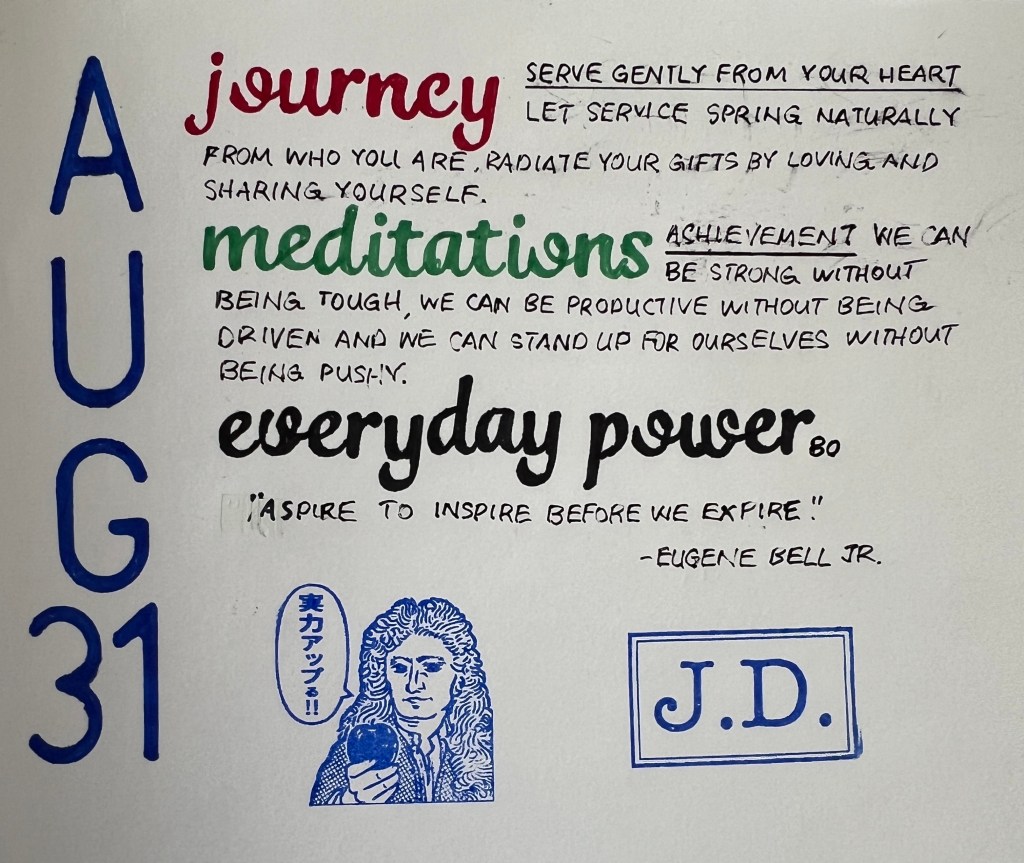 AUG
31
journey SERVE GENTLY FROM YOUR HEART
LET SERVICE SPRING NATURALLY
FROM WHO YOU ARE. RADIATE YOUR GIFTS BY LOVING AND
SHARING YOURSELF.
meditations ACHIEVEMENT WE CAN
BE STRONG WITHOUT
BEING TOUGH, WE CAN BE PRODUCTIVE WITHOUT BEING
DRIVEN AND WE CAN STAND UP FOR OURSELVES WITHOUT
BEING PUSHY.
everyday power 80
"ASPIRE TO INSPIRE BEFORE WE EXPIRE."
-EUGENE BELL JR.
実力アップる!!
J.D.